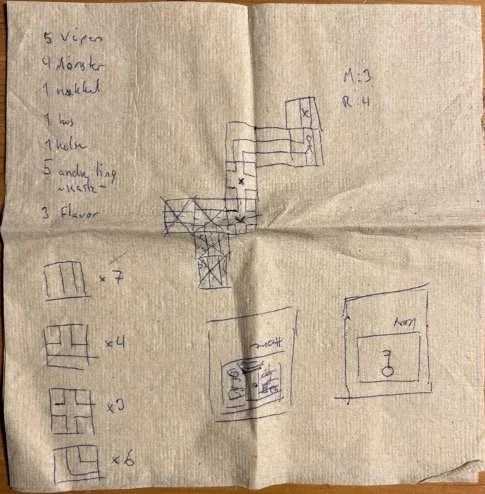 5 Våpen
4 Monster
1 nøkkel
1 hus
1 helse
5 andre ting
3 Flavor
M:3
R:4
x 7
x 4
x 3
x 6
Key